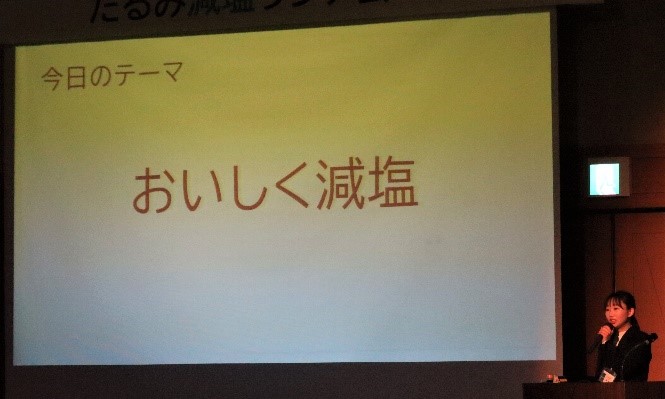 たるみ減塩
今日のテーマ
おいしく減塩